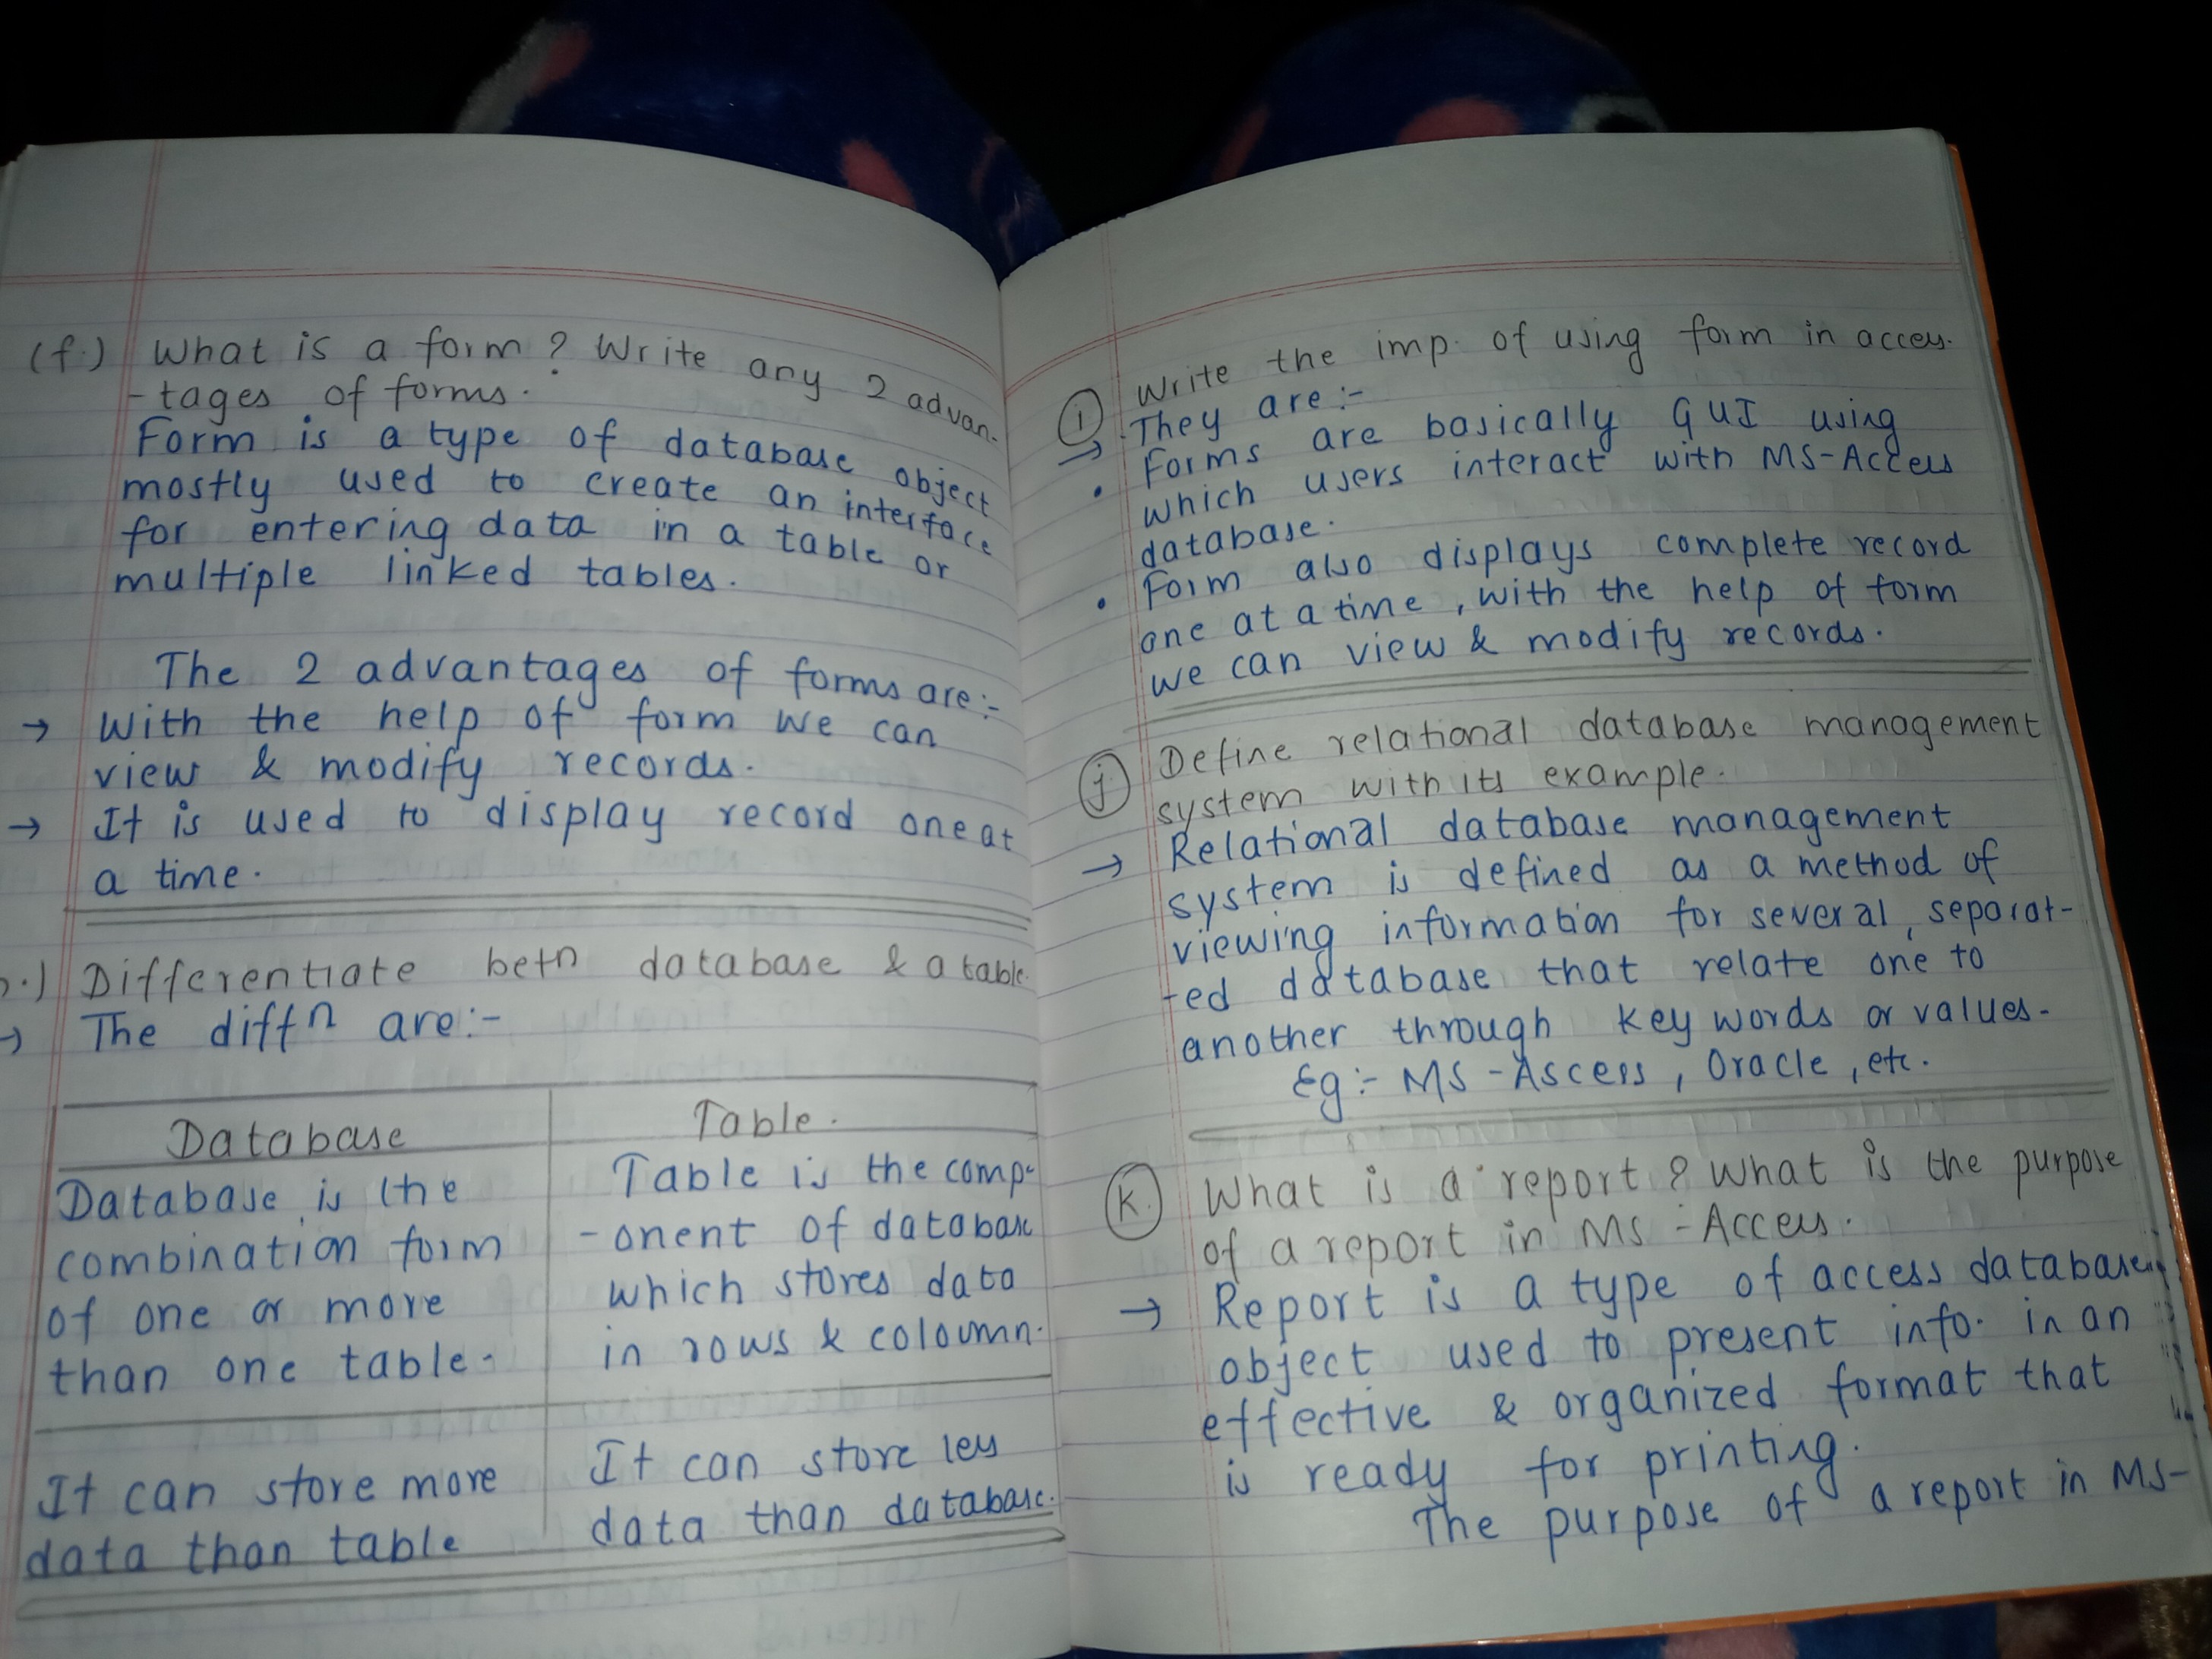 (f.) What is a form? Write any 2 advan-
-tages of forms.
Form is a type of database object
mostly used to create an interface
for entering data in a table or
multiple linked tables.
The 2 advantages of forms are:-
→ With the help of form we can
view & modify records.
→ It is used to display record one at
a time.
.) Differentiate betn database & a table.
→ The diffn are:-
Database
Database is the
combination form
of one or more
than one table.
It can store more
data than table
Table.
Table is the comp-
-onent of database
which stores data
in rows & coloumn.
It can store less
data than database.
(i) Write the imp. of using form in access.
→ They are:-
• Forms are basically GUI using
which users interact with MS-Access
database.
• Form also displays complete record
one at a time, with the help of form
we can view & modify records.
(j) Define relational database management
system with its example.
→ Relational database management
system is defined as a method of
viewing information for several, separat-
-ed database that relate one to
another through key words or values.
Eg:- MS-Ascess, Oracle, etc.
(k.) What is a report? What is the purpose
of a report in MS-Access.
→ Report is a type of access database
object used to present info. in an
effective & organized format that
is ready for printing.
The purpose of a report in MS-